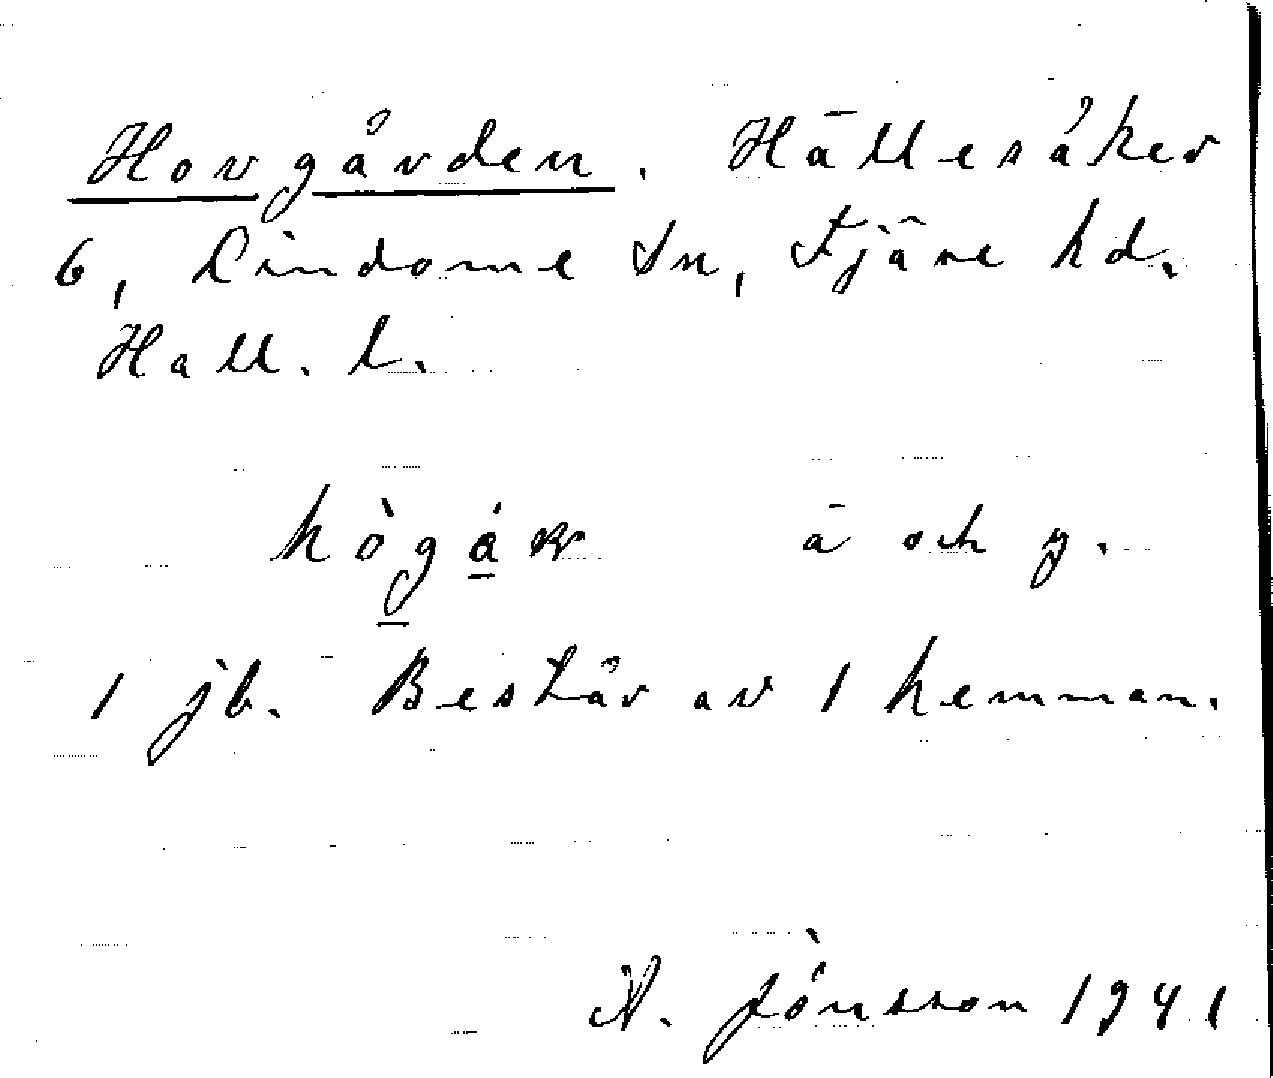 Horgården. Hällesåker
6, Lindome Sn, Fjäre hd.
Hall. l.
ä och y.
1 jb. Består av 1 hemman.
A. Jónsson 1941